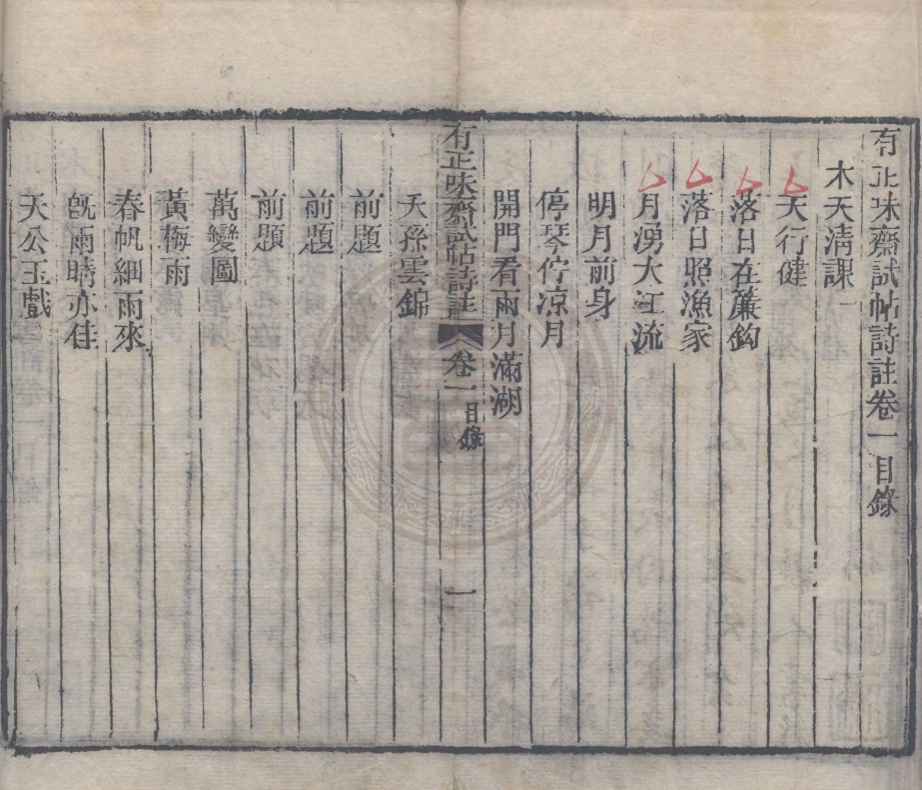 有正味齋試帖詩註卷一目錄
木天清課一
天行健
落日在簾鈎
落日照漁家
月湧大江流
明月前身
停琴佇凉月
開門看雨月滿湖
有正味齋試帖詩註 卷一 目錄 一
天孫雲錦
前題
前題
前題
萬變圖
黃梅雨
春帆細雨來
旣雨晴亦佳
天公玉戲